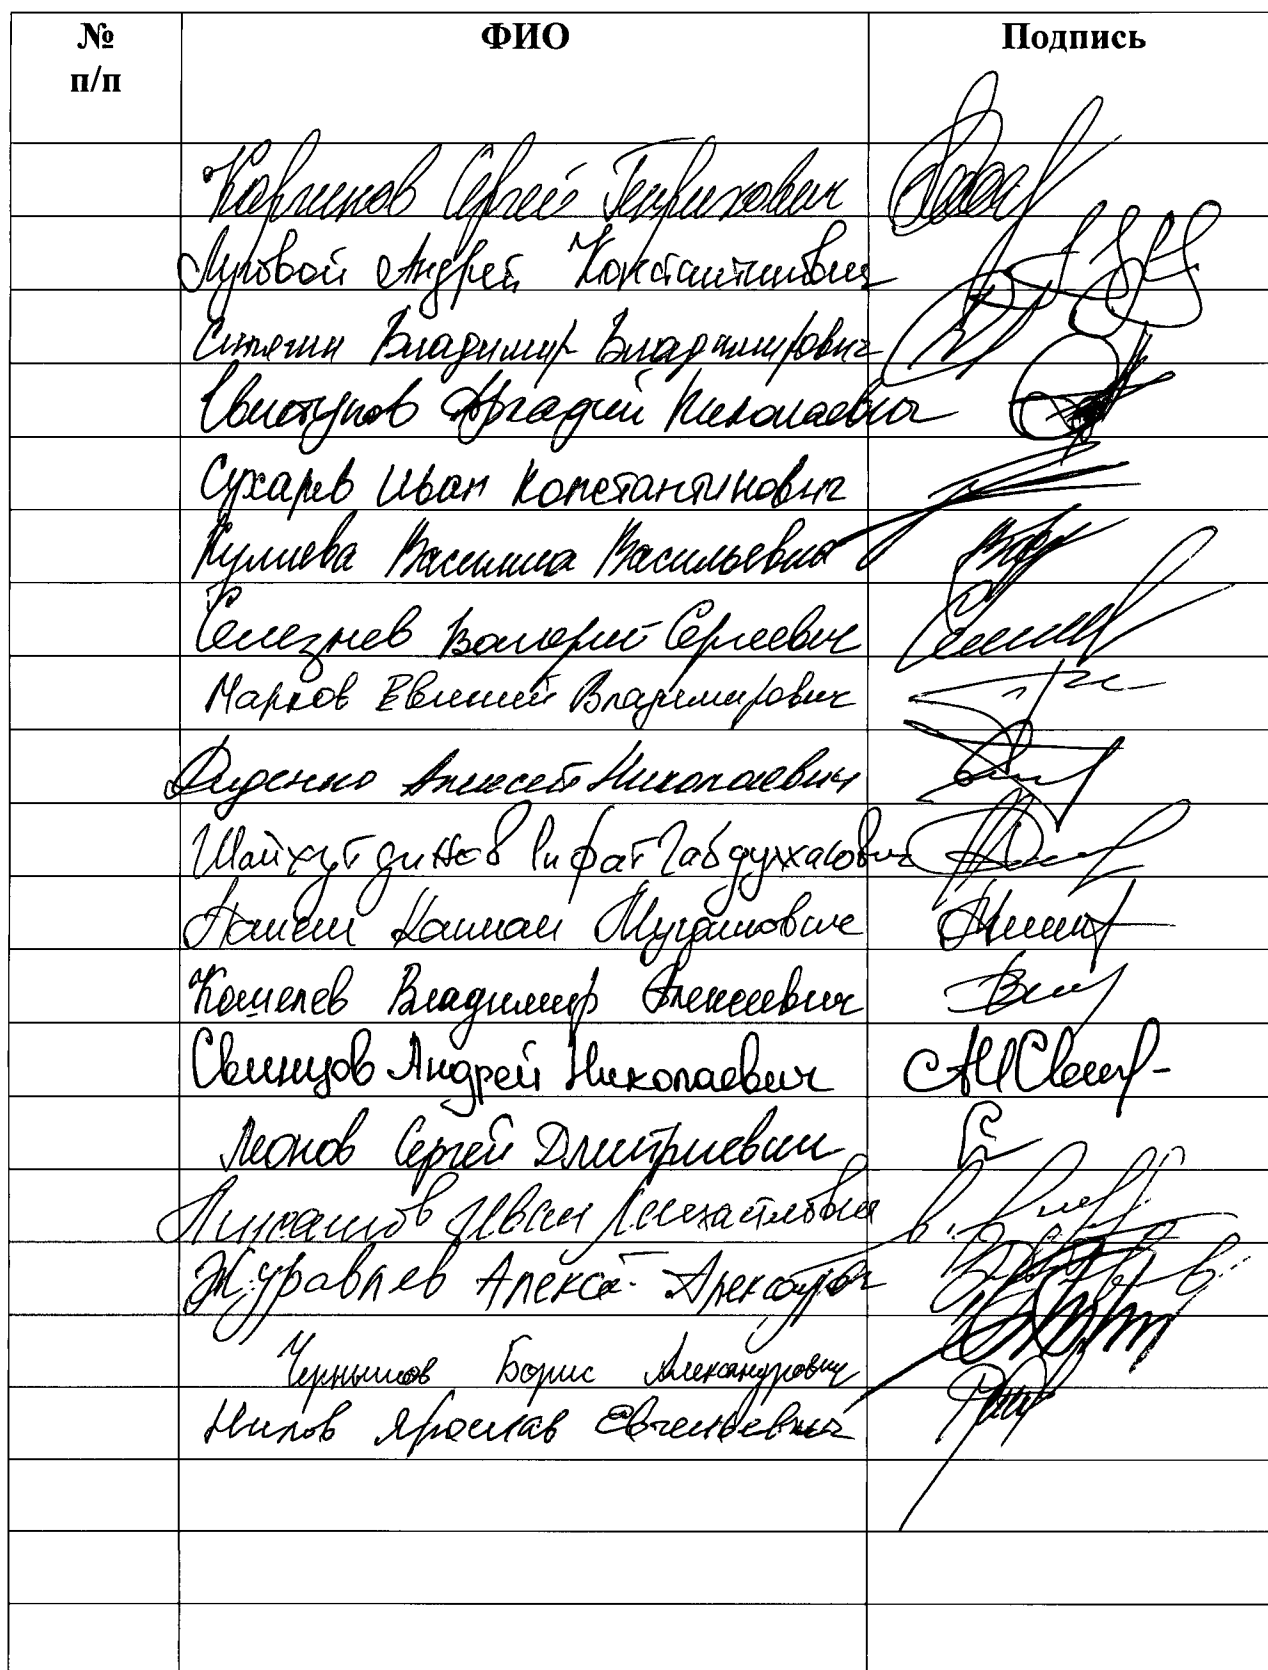 № ФИО Подпись
п/п
Каргинов Сергей Генрихович
Луговой Андрей Константинович
Сипягин Владимир Владимирович
Свистунов Аркадий Николаевич
Сухарев Иван Константинович
Кулиева Василина Васильевна
Селезнев Валерий Сергеевич
Марков Евгений Владимирович
Диденко Алексей Николаевич
Шайхутдинов Рифат Габдулхакович
Пашин Виталий Львович
Кошелев Владимир Алексеевич
Свинцов Андрей Николаевич
Леонов Сергей Дмитриевич
Иван Михайлович
Журавлев Алексей
Чернышов Борис Александрович
Нилов Ярослав Евгеньевич